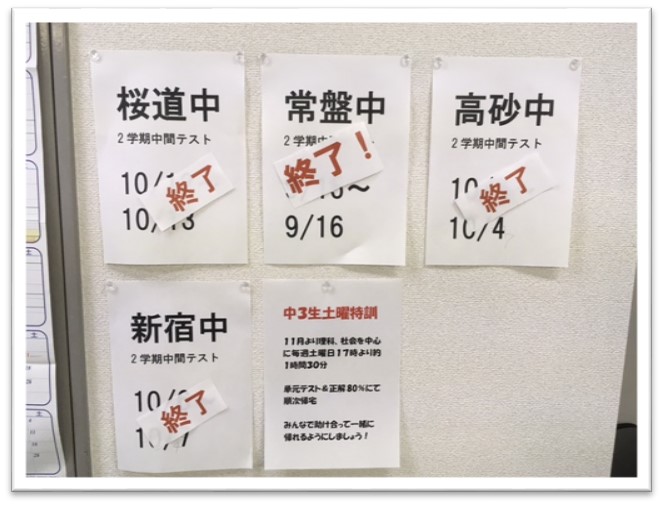 桜道中
2学期中間テスト
10/1
終了
10/13
常盤中
2学期中
終了！
9/16
高砂中
2学期中間テスト
10/
終了
10/4
新宿中
2学期中間テスト
10/
終了
10/7
中3生土曜特訓
11月より理科、社会を中心
に毎週土曜日17時より約
1時間30分
単元テスト&正解80%にて
順次帰宅
みんなで助け合って一緒に
帰れるようにしましょう！